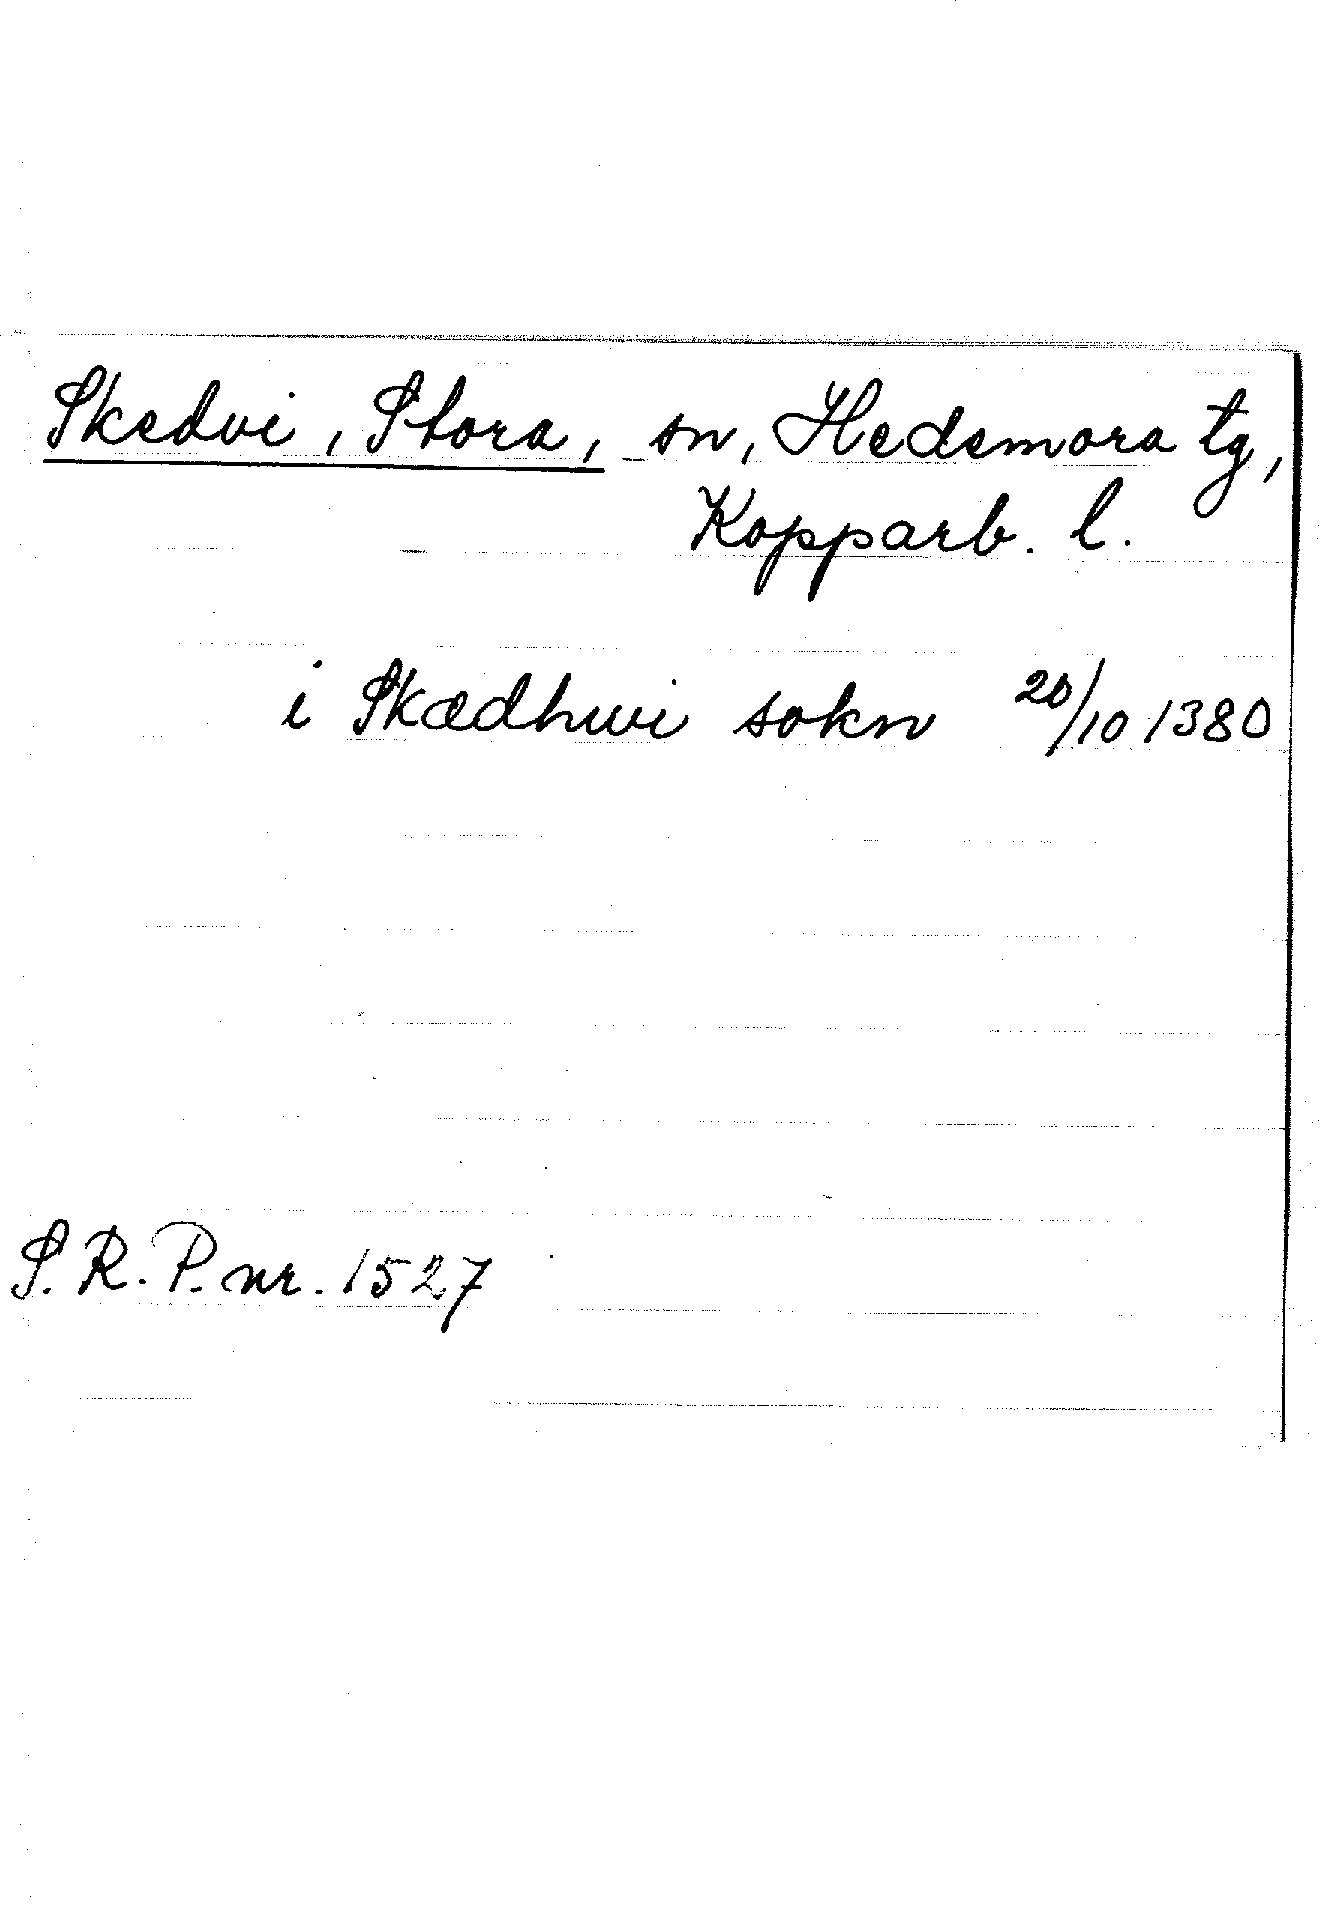 Skedvi, Stora, sn, Hedemora tg,
Kopparb. l.
i Skædhwi sokn 20/10 1380
S. R. P. nr. 1527